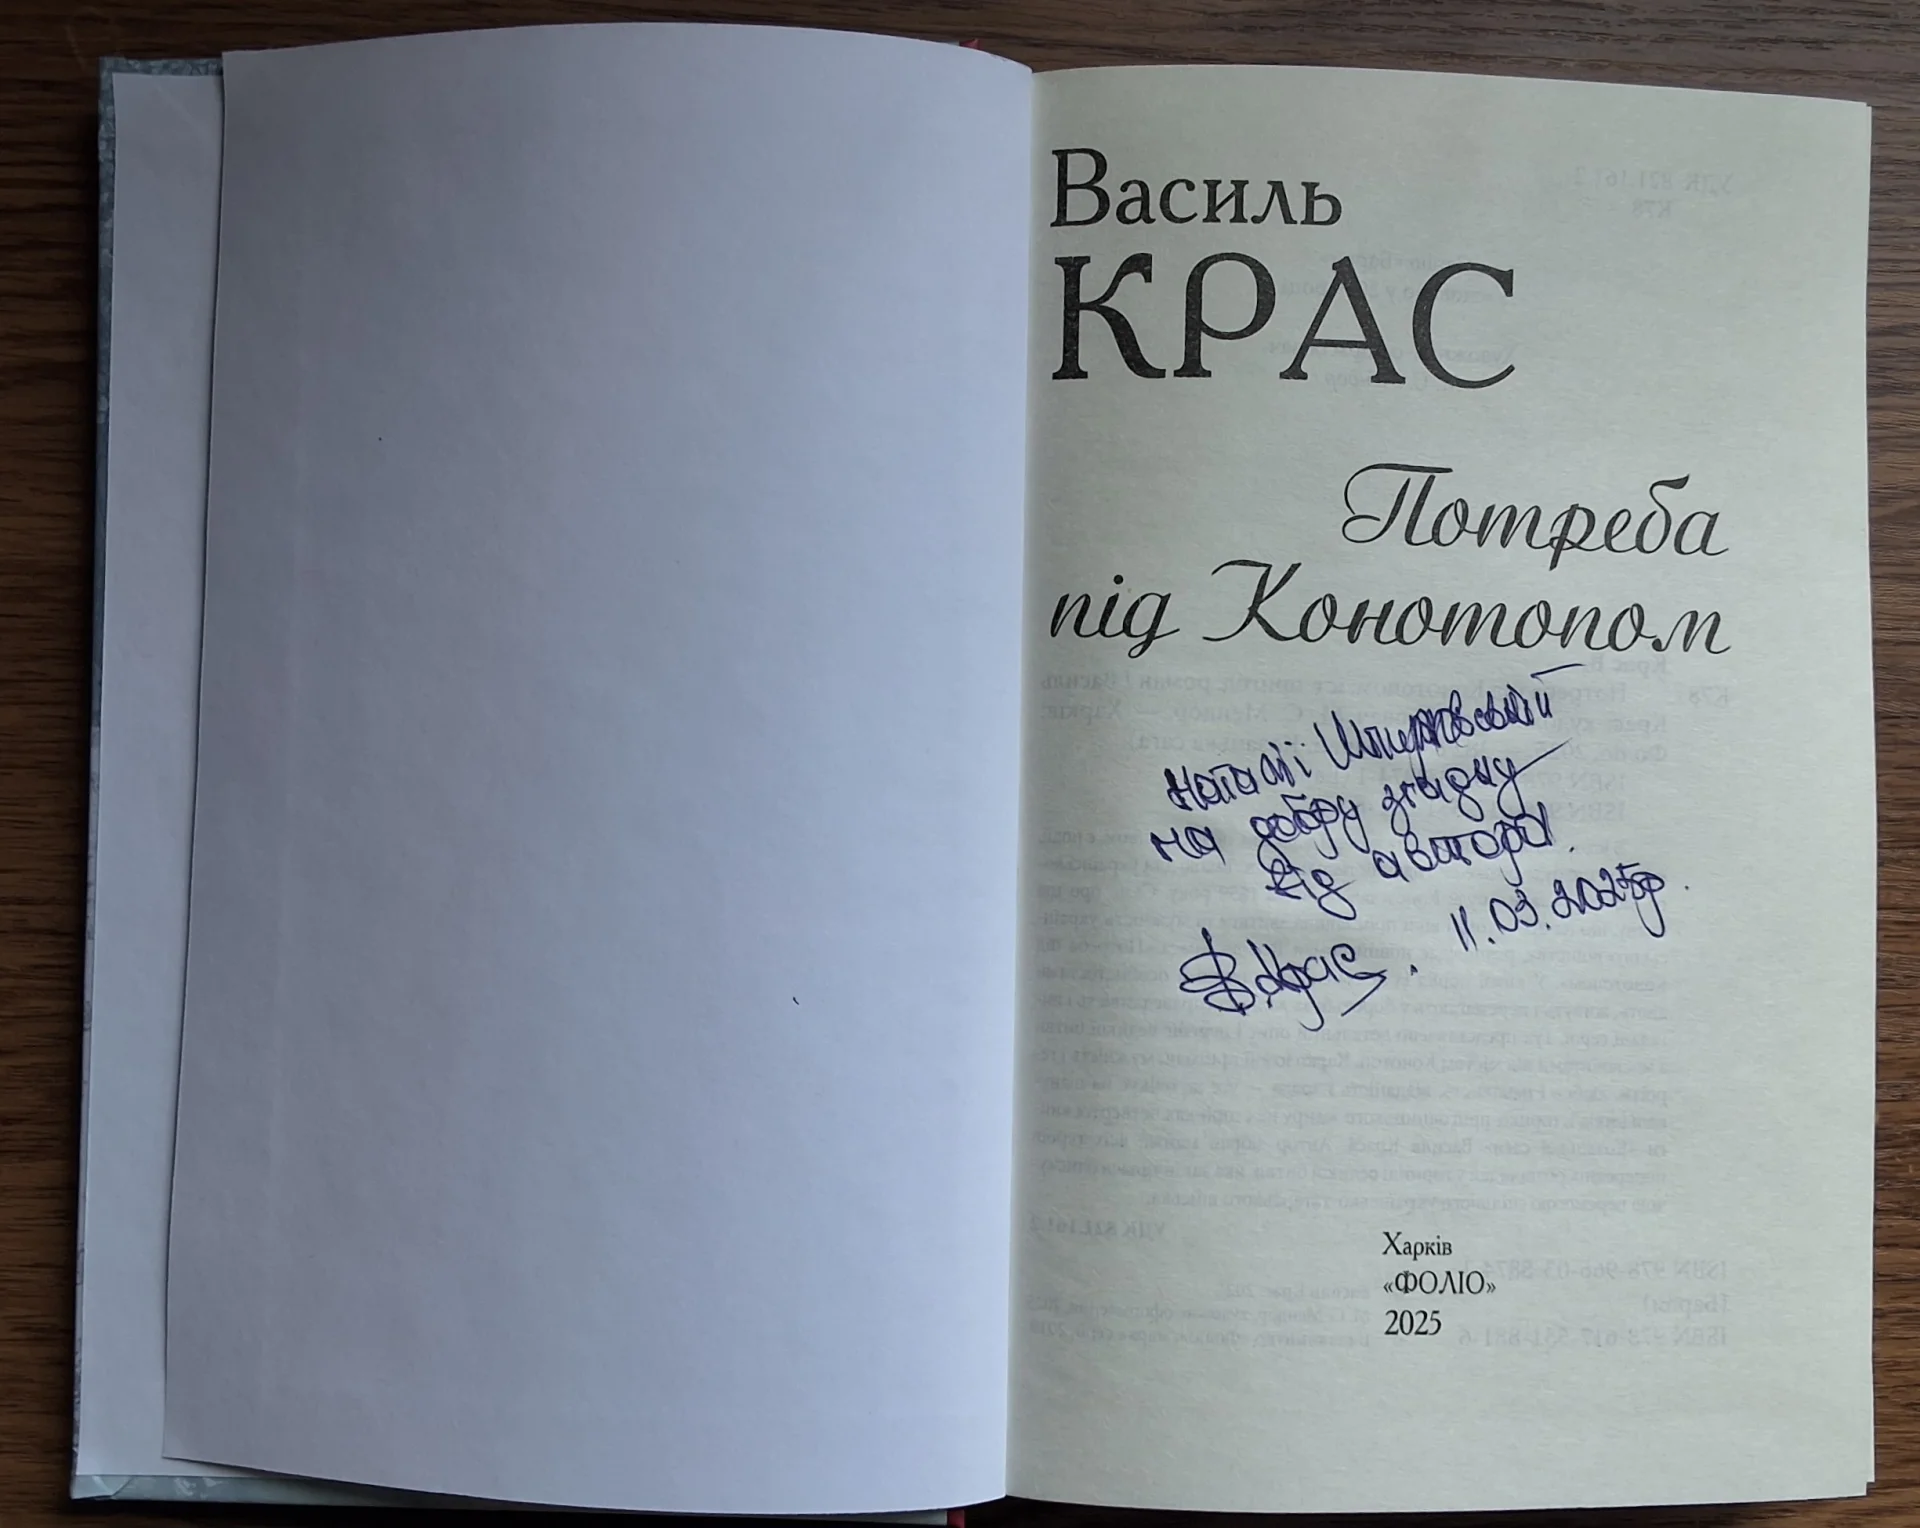 Василь
КРАС
Потреба
під Конотопом
Наталії
на добру згадку
від автора.
11.03.2025р.
В.Крас.
Харків
«ФОЛІО»
2025